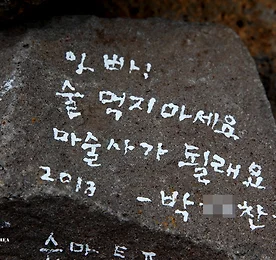 아빠!
술 먹지마세요
마술사가 될래요
2013 - 박 찬
스마트프